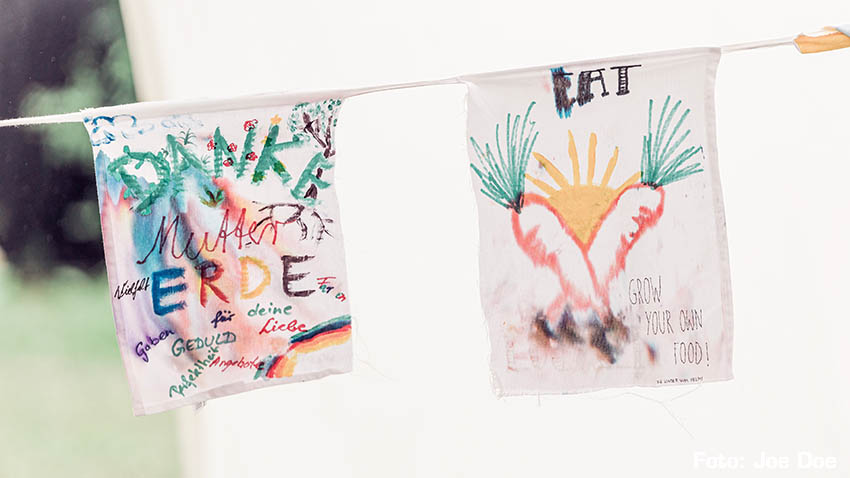 DANKE
Mutter
ERDE
Vielfalt
für deine
Liebe
Gaben
GEDULD
Angebote
EAT
GROW
YOUR OWN
FOOD!
Foto: Joe Doe